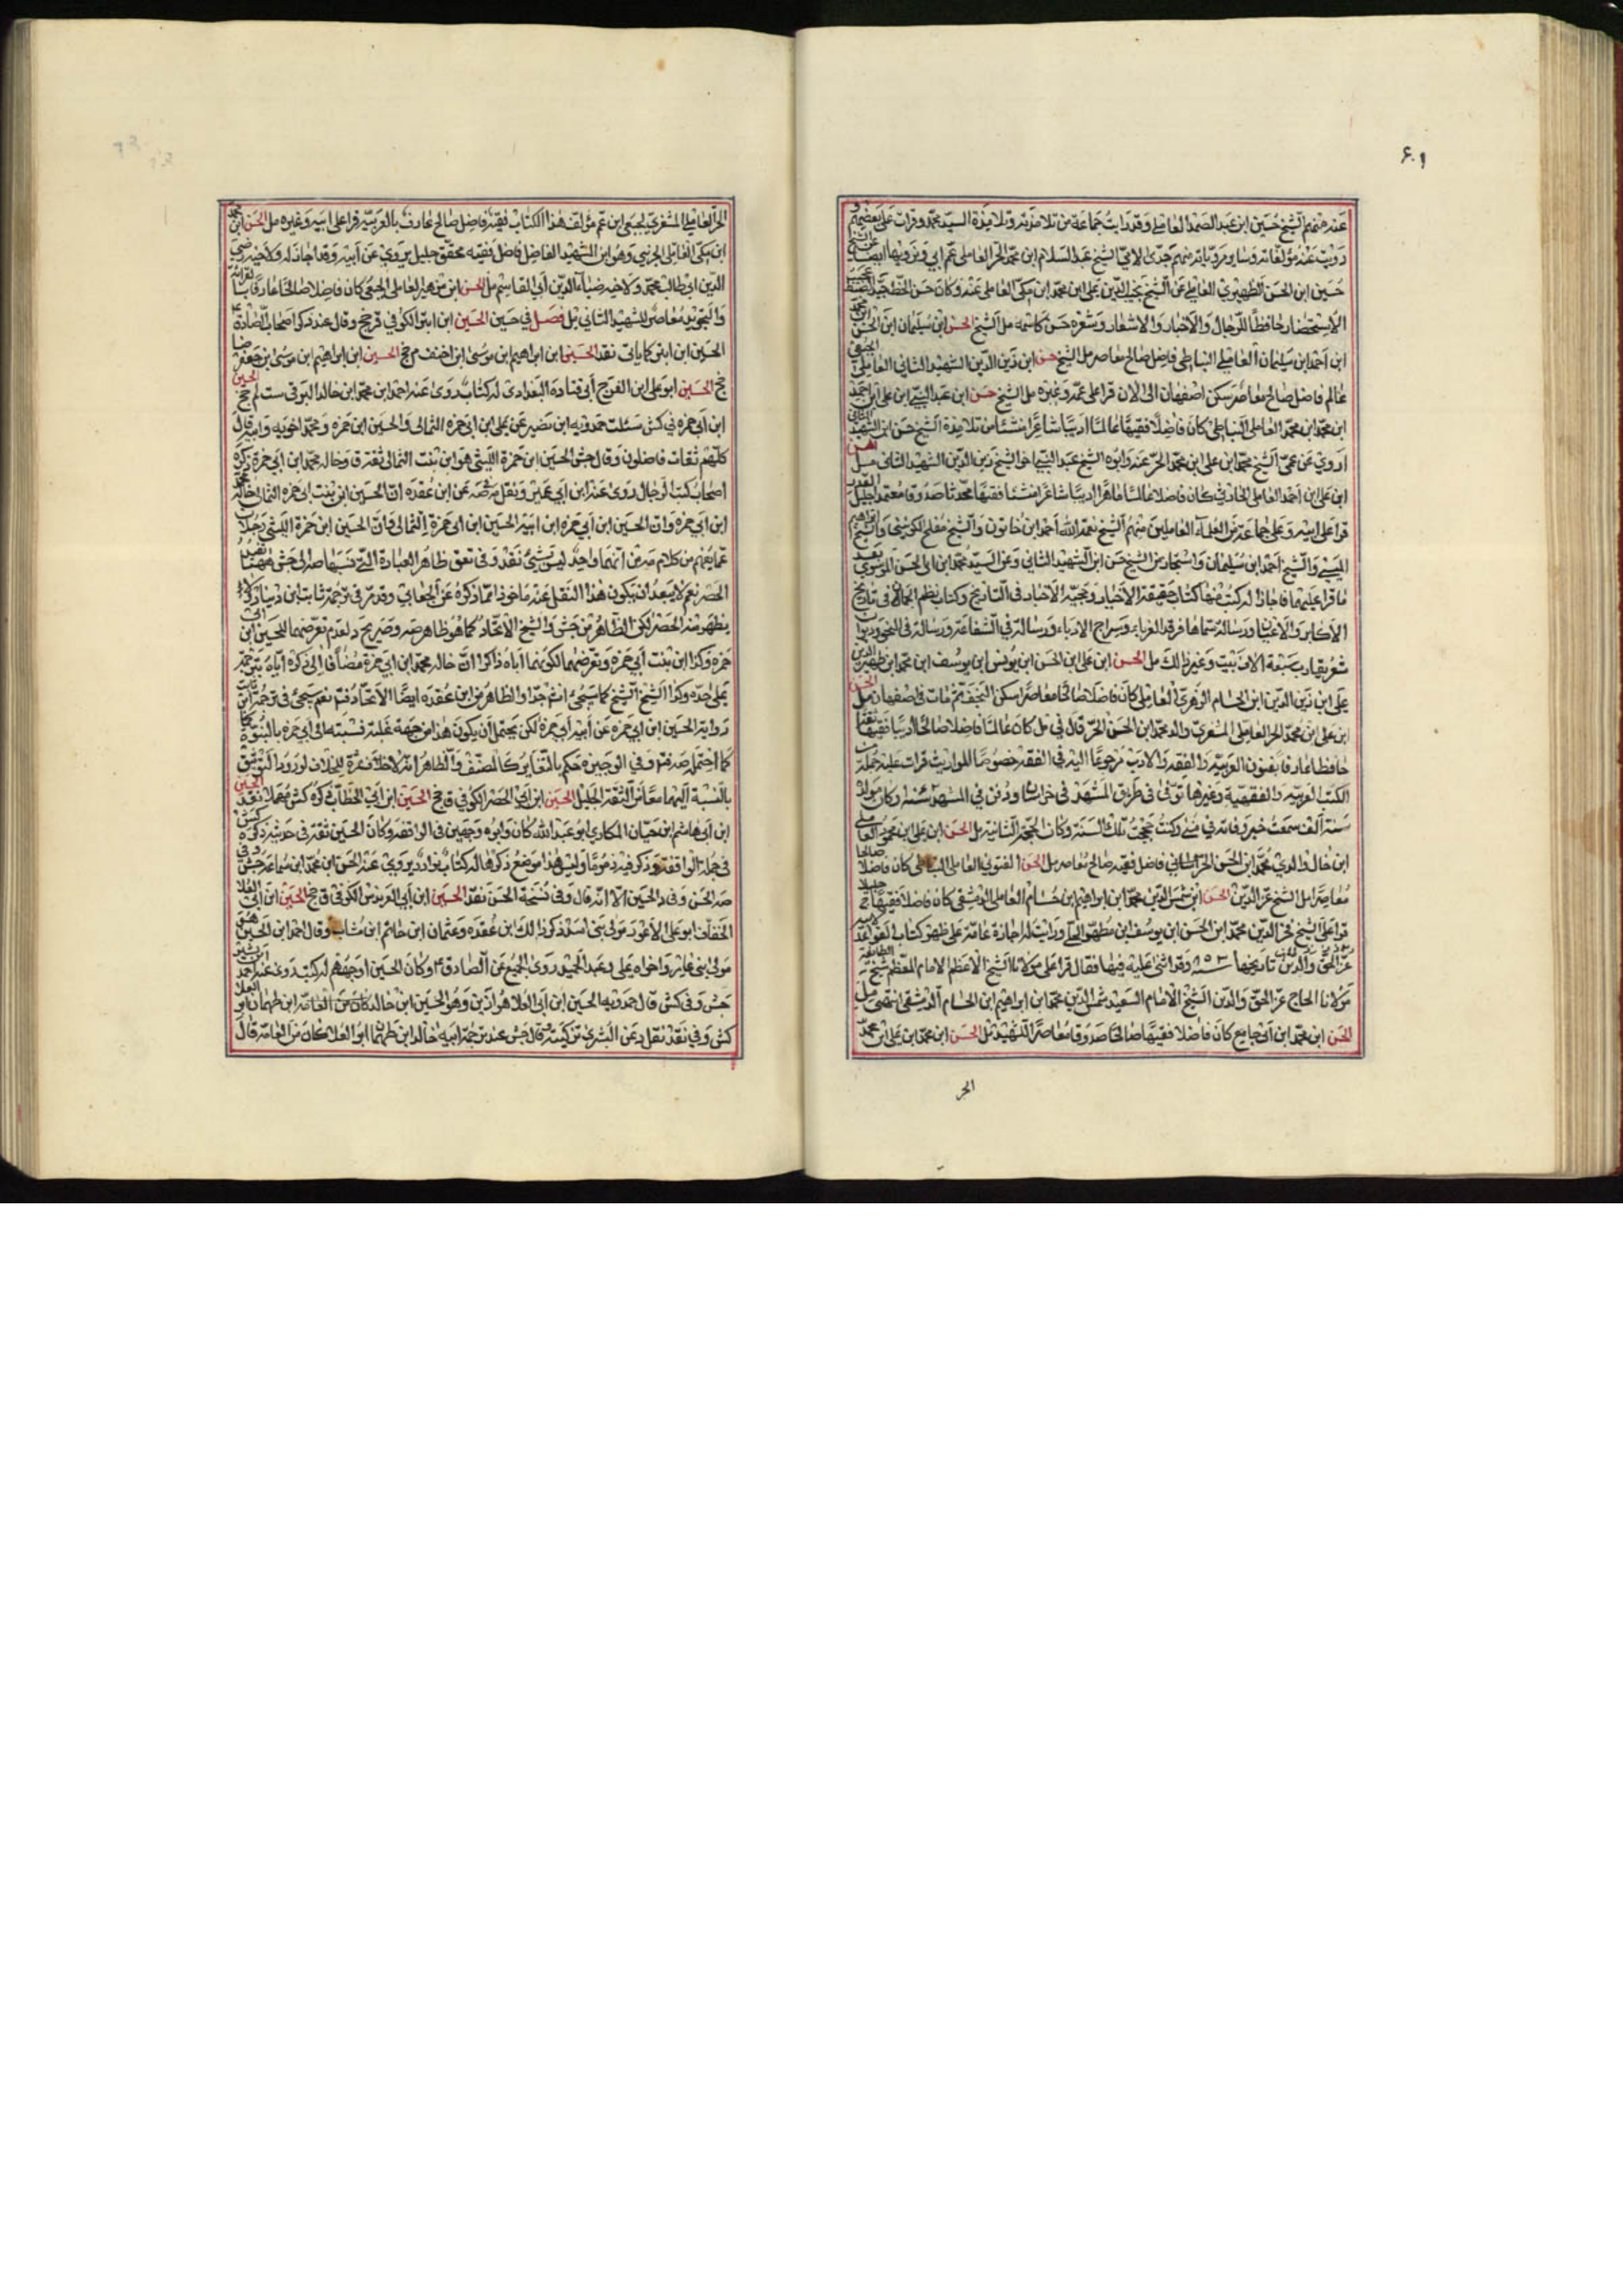 عنه منهم الشيخ حسين ابن عبد الصمد العاملي وقد رايت جماعة من تلامذته وتلامذة السيد محمد وقرات على بعضهم و
رويت عنه مؤلفاته وساير مروياته منهم جدي لامي الشيخ عبد السلام ابن محمد الحر العاملي عم ابي ونرويها ايضا عن الشيخ
حسين ابن الحسن الظهيري العاملي عن الشيخ نجيب الدين علي ابن محمد ابن مكي العاملي عنه وكان حسن الخط جيد الضبط عجيب
الاستحضار حافظا للرجال والاخبار والاشعار وشعره حسن كاسمه مل الشيخ الحسن ابن سليمان ابن الحسن ابن محمد
ابن احمد ابن سليمان العاملي النباطي فاضل صالح معاصر مل الشيخ حسن ابن زين الدين الشهيد الثاني العاملي الجبعي
عالم فاضل صالح معاصر سكن اصفهان الى الان قرا على عمه وغيره مل الشيخ حسن ابن عبد النبي ابن علي ابن احمد
ابن محمد ابن محمد العاملي النباطي كان فاضلا فقيها عالما اديبا شاعرا منشئا من تلامذة الشيخ حسن ابن الشهيد الثاني
اروي عن عمي الشيخ محمد ابن علي ابن محمد الحر عنه وابوه الشيخ عبد النبي اخو الشيخ زين الدين الشهيد الثاني مل الحسن
ابن علي ابن احمد العاملي الحانيني كان فاضلا عالما ماهرا اديبا شاعرا منشئا فقيها محدثا صدوقا معتمدا جليل القدر
قرا على ابيه وعلى جماعة من العلماء العاملين منهم الشيخ نعمة الله احمد ابن خاتون والشيخ مفلح الكونيني والشيخ ابراهيم
الميسي والشيخ احمد ابن سليمان واستجاز من الشيخ حسن ابن الشهيد الثاني وعن السيد محمد ابن ابي الحسن الموسوي بعد
ما قرا عليهما فاجازا له كتب منها كتاب حقيقة الاخبار وجهينة الاخبار في التاريخ وكتاب نظم الجمان في تاريخ
الاكابر والاعيان ورسالة سماها فرقد الغرباء وسراج الادباء ورسالة في الشفاعة ورسالة في النحو وديوان
شعر يقارب سبعة الاف بيت وغير ذلك مل الحسن ابن علي ابن الحسن ابن يونس ابن يوسف ابن محمد ابن ظهير الدين
علي ابن زين الدين ابن الحسام الزهري العاملي كان فاضلا صالحا معاصرا سكن النجف ثم مات في اصفهان مل الحسن
ابن علي ابن محمد الحر العاملي المشغري والد محمد ابن الحسن الحر قال في مل كان عالما فاضلا صالحا اديبا فقيها ثقة
حافظا عارفا بفنون العربية والفقه والادب مرجوعا اليه في الفقه خصوصا للمواريث قرات عليه جملة من
الكتب العربية والفقهية وغيرها توفى في طريق المشهد في خراسان ودفن في المشهد سنة وكان مولده
سنة الف سمعت خبر وفاته في منى وكنت حججت تلك السنة وكانت الحجة الثانية مل الحسن ابن علي ابن محمود العاملي
ابن خال والدي محمد ابن الحسن الحر فاضل فقيه صالح معاصر مل الحسن الفتوني العاملي النباطي كان فاضلا صالحا
معاصرا مل الشيخ عز الدين الحسن ابن شمس الدين محمد ابن ابراهيم ابن حسام العاملي الدمشقي كان فاضلا فقيها جليلا
قرا على الشيخ فخر الدين محمد ابن الحسن ابن يوسف ابن مطهر الحلي ورايت له اجازة عامة على ظهر كتاب القواعد
عز الحق والدين تاريخها سنة ٧٥٣ وقد اثنى عليه فيها فقال قرا علي مولانا الشيخ الاعظم الامام المعظم شيخ الطائفة
مولانا الحاج عز الحق والدين الشيخ الامام السعيد شمس الدين محمد ابن ابراهيم ابن الحسام الدمشقي انتهى مل
الحسن ابن محمد ابن ابي جامع كان فاضلا فقيها صالحا صدوقا معاصرا للشهيد مل الحسن ابن محمد ابن علي ابن محمد
الحر
الحر العاملي المشغري الجبعي ابن عم مؤلف هذا الكتاب فقيه فاضل صالح عارف بالعربية قرا على ابيه وغيره مل الحسن ابن محمد
ابن مكي العاملي الجزيني وهو ابن الشهيد الفاضل فاضل فقيه محقق جليل يروي عن ابيه وقد اجاز له ولاخيه رضي
الدين ابي طالب محمد ولاخيه ضياء الدين ابي القاسم مل الحسن ابن مزهر العاملي الجبعي كان فاضلا صالحا عارفا بالقرائة
والتجويد معاصر للشهيد الثاني مل فصل في حسين الحسين ابن ابتر الكوفي ق جخ وقال عند ذكر اصحاب الصادق ع
الحسين ابن ابتر كما ياتي نقد الحسين ابن ابراهيم ابن موسى ابن احنف م جخ الحسين ابن ابراهيم ابن موسى بن جعفر ضا
جخ الحسين ابو علي ابن الفرج ابي قتادة البغدادي له كتاب روى عنه احمد ابن محمد ابن خالد البرقي ست لم جخ الحسين
ابن ابي حمزه في كش سئلت حمدويه ابن نصير عن علي ابن ابي حمزه الثمالي والحسين ابن حمزه ومحمد اخويه وابيه قال
كلهم ثقات فاضلون وقال جش الحسين ابن حمزة الليثي هو ابن بنت الثمالي ثقة ق وخاله محمد ابن ابي حمزة ذكره
اصحاب كتب الرجال روى عنه ابن ابي عمير ونقل مه صه عن ابن عقده ان الحسين ابن بنت ابي حمزه الثمالي خاله محمد
ابن ابي حمزه وان الحسين ابن ابي حمزه ابن ابنة الحسين ابن ابي حمزة الثمالي وان الحسين ابن حمزة الليثي رجل
الحصر نعم لا يبعد ان يكون هذا النقل عنه ماخوذا مما ذكره عن الجعابي وقد مر في ترجمة ثابت ابن دينار
يظهر منه الحصر لكن الظاهر من جش والشيخ الاتحاد كما هو ظاهر صه وصريح د لعدم تعرضهما للحسين ابن ابي
حمزه وكذا ابن بنت ابي حمزه وتعرضهما لكونهما اباه ذاكرا ان خاله محمد ابن ابي حمزة مضافا الى ذكره اياه بترجمة
على حده وكذا الشيخ كما سيجئ
رواية الحسين ابن ابي حمزه عن ابيه ابي حمزة لكن يحتمل ان يكون هذا من جهة غلبة نسبته الى ابي حمزه بالبنوة
بالنسبة اليهما معا الثقة الجليل الحسين ابن ابي الخضر الكوفي ق جخ الحسين ابن ابي الخطاب ذكره كش مهملا نقد الحسين
ابن ابي هاشم ابن حيان المكاري ابو عبد الله كان وابوه وجهين في الواقفه وكان الحسين ثقة في حديثه ذكره كش
في جملة الواقفة وذكر فيه ذموما وليس هذا موضع ذكرها له كتاب نوادر يروي عنه الحسن ابن محمد ابن سماعه جش وفي
صه الحسن وفي د الحسين الا انه قال وفي نسخة الحسن نقد الحسين ابن ابي العرندس الكوفي ق جخ الحسين ابن ابي العلا
الخفاف ابو علي الاعور مولى بني اسد ذكر ذلك ابن عقده وعثمان ابن حاتم ابن منتاب وقال احمد ابن الحسين هو
مولى بني عامر واخواه علي وعبد الحميد روى الجميع عن الصادق ع وكان الحسين اوجههم له كتب روى عنه احمد ابن بشير
جش وفي كش قال حمدويه الحسين ابن ابي العلا هو ازدي وهو الحسين ابن خالد